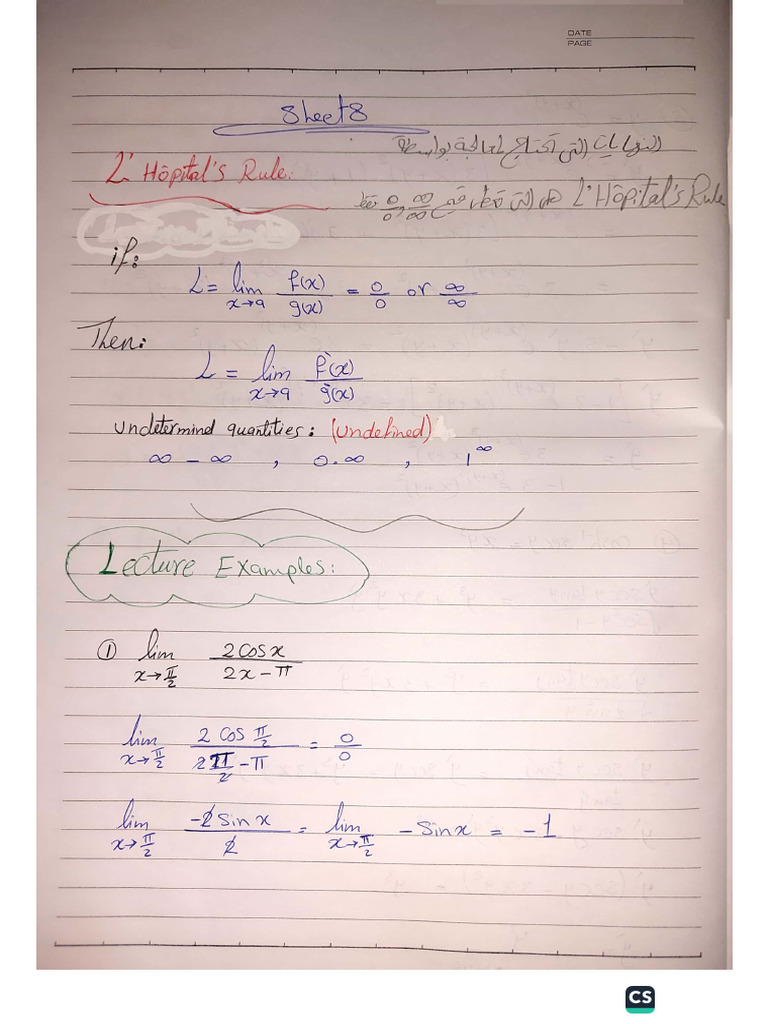 DATE
PAGE
Sheet 8
النهايات التي تحتاج لمعالجة بواسطة
L'Hôpital's Rule:
L'Hôpital's Rule هي التي تعطي قيم 0/0, ∞/∞ فقط
if:
L = lim x→a f(x)/g(x) = 0/0 or ∞/∞
Then:
L = lim x→a f'(x)/g'(x)
undetermind quantities: (undefined)
∞ - ∞ , 0.∞ , 1^∞
Lecture Examples:
① lim x→π/2 2cosx/2x-π
lim x→π/2 2 cos π/2 / 2π/2 - π = 0/0
lim x→π/2 -2 sin x/2 = lim x→π/2 - sin x = -1
CS